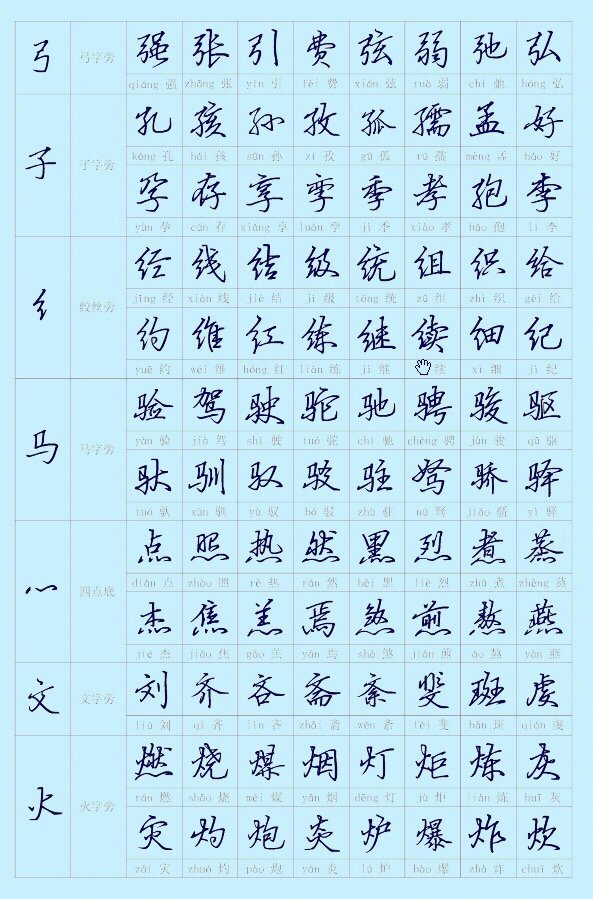 弓 弓字旁 强 张 引 费 弦 弱 弛 弘
qiáng 强 zhāng 张 yǐn 引 fèi 费 xián 弦 ruò 弱 chí 弛 hóng 弘
子 子字旁 孔 孩 孙 孜 孤 孺 孟 好
kǒng 孔 hái 孩 sūn 孙 zī 孜 gū 孤 rú 孺 mèng 孟 hǎo 好
孕 存 享 孪 季 孝 孢 李
yùn 孕 cún 存 xiǎng 享 luán 孪 jì 季 xiào 孝 bāo 孢 lǐ 李
纟 绞丝旁 经 线 结 级 统 组 织 给
jīng 经 xiàn 线 jié 结 jí 级 tǒng 统 zǔ 组 zhī 织 gěi 给
约 维 红 练 继 续 细 纪
yuē 约 wéi 维 hóng 红 liàn 练 jì 继 续 xì 细 jì 纪
马 马字旁 验 驾 驶 驼 驰 骋 骏 驱
yàn 验 jià 驾 shǐ 驶 tuó 驼 chí 驰 chěng 骋 jùn 骏 qū 驱
驮 驯 驭 驳 驻 驽 骄 驿
tuó 驮 xùn 驯 yù 驭 bó 驳 zhù 驻 nú 驽 jiāo 骄 yì 驿
灬 四点底 点 照 热 然 黑 烈 煮 蒸
diǎn 点 zhào 照 rè 热 rán 然 hēi 黑 liè 烈 zhǔ 煮 zhēng 蒸
杰 焦 羔 焉 煞 煎 熬 燕
jié 杰 jiāo 焦 gāo 羔 yān 焉 shà 煞 jiān 煎 áo 熬 yàn 燕
文 文字旁 刘 齐 吝 斋 紊 斐 斑 虔
liú 刘 qí 齐 lìn 吝 zhāi 斋 wěn 紊 fěi 斐 bān 斑 qián 虔
火 火字旁 燃 烧 煤 烟 灯 炬 炼 灰
rán 燃 shāo 烧 méi 煤 yān 烟 dēng 灯 jù 炬 liàn 炼 huī 灰
灾 灼 炮 炎 炉 爆 炸 炊
zāi 灾 zhuó 灼 pào 炮 yán 炎 lú 炉 bào 爆 zhà 炸 chuī 炊